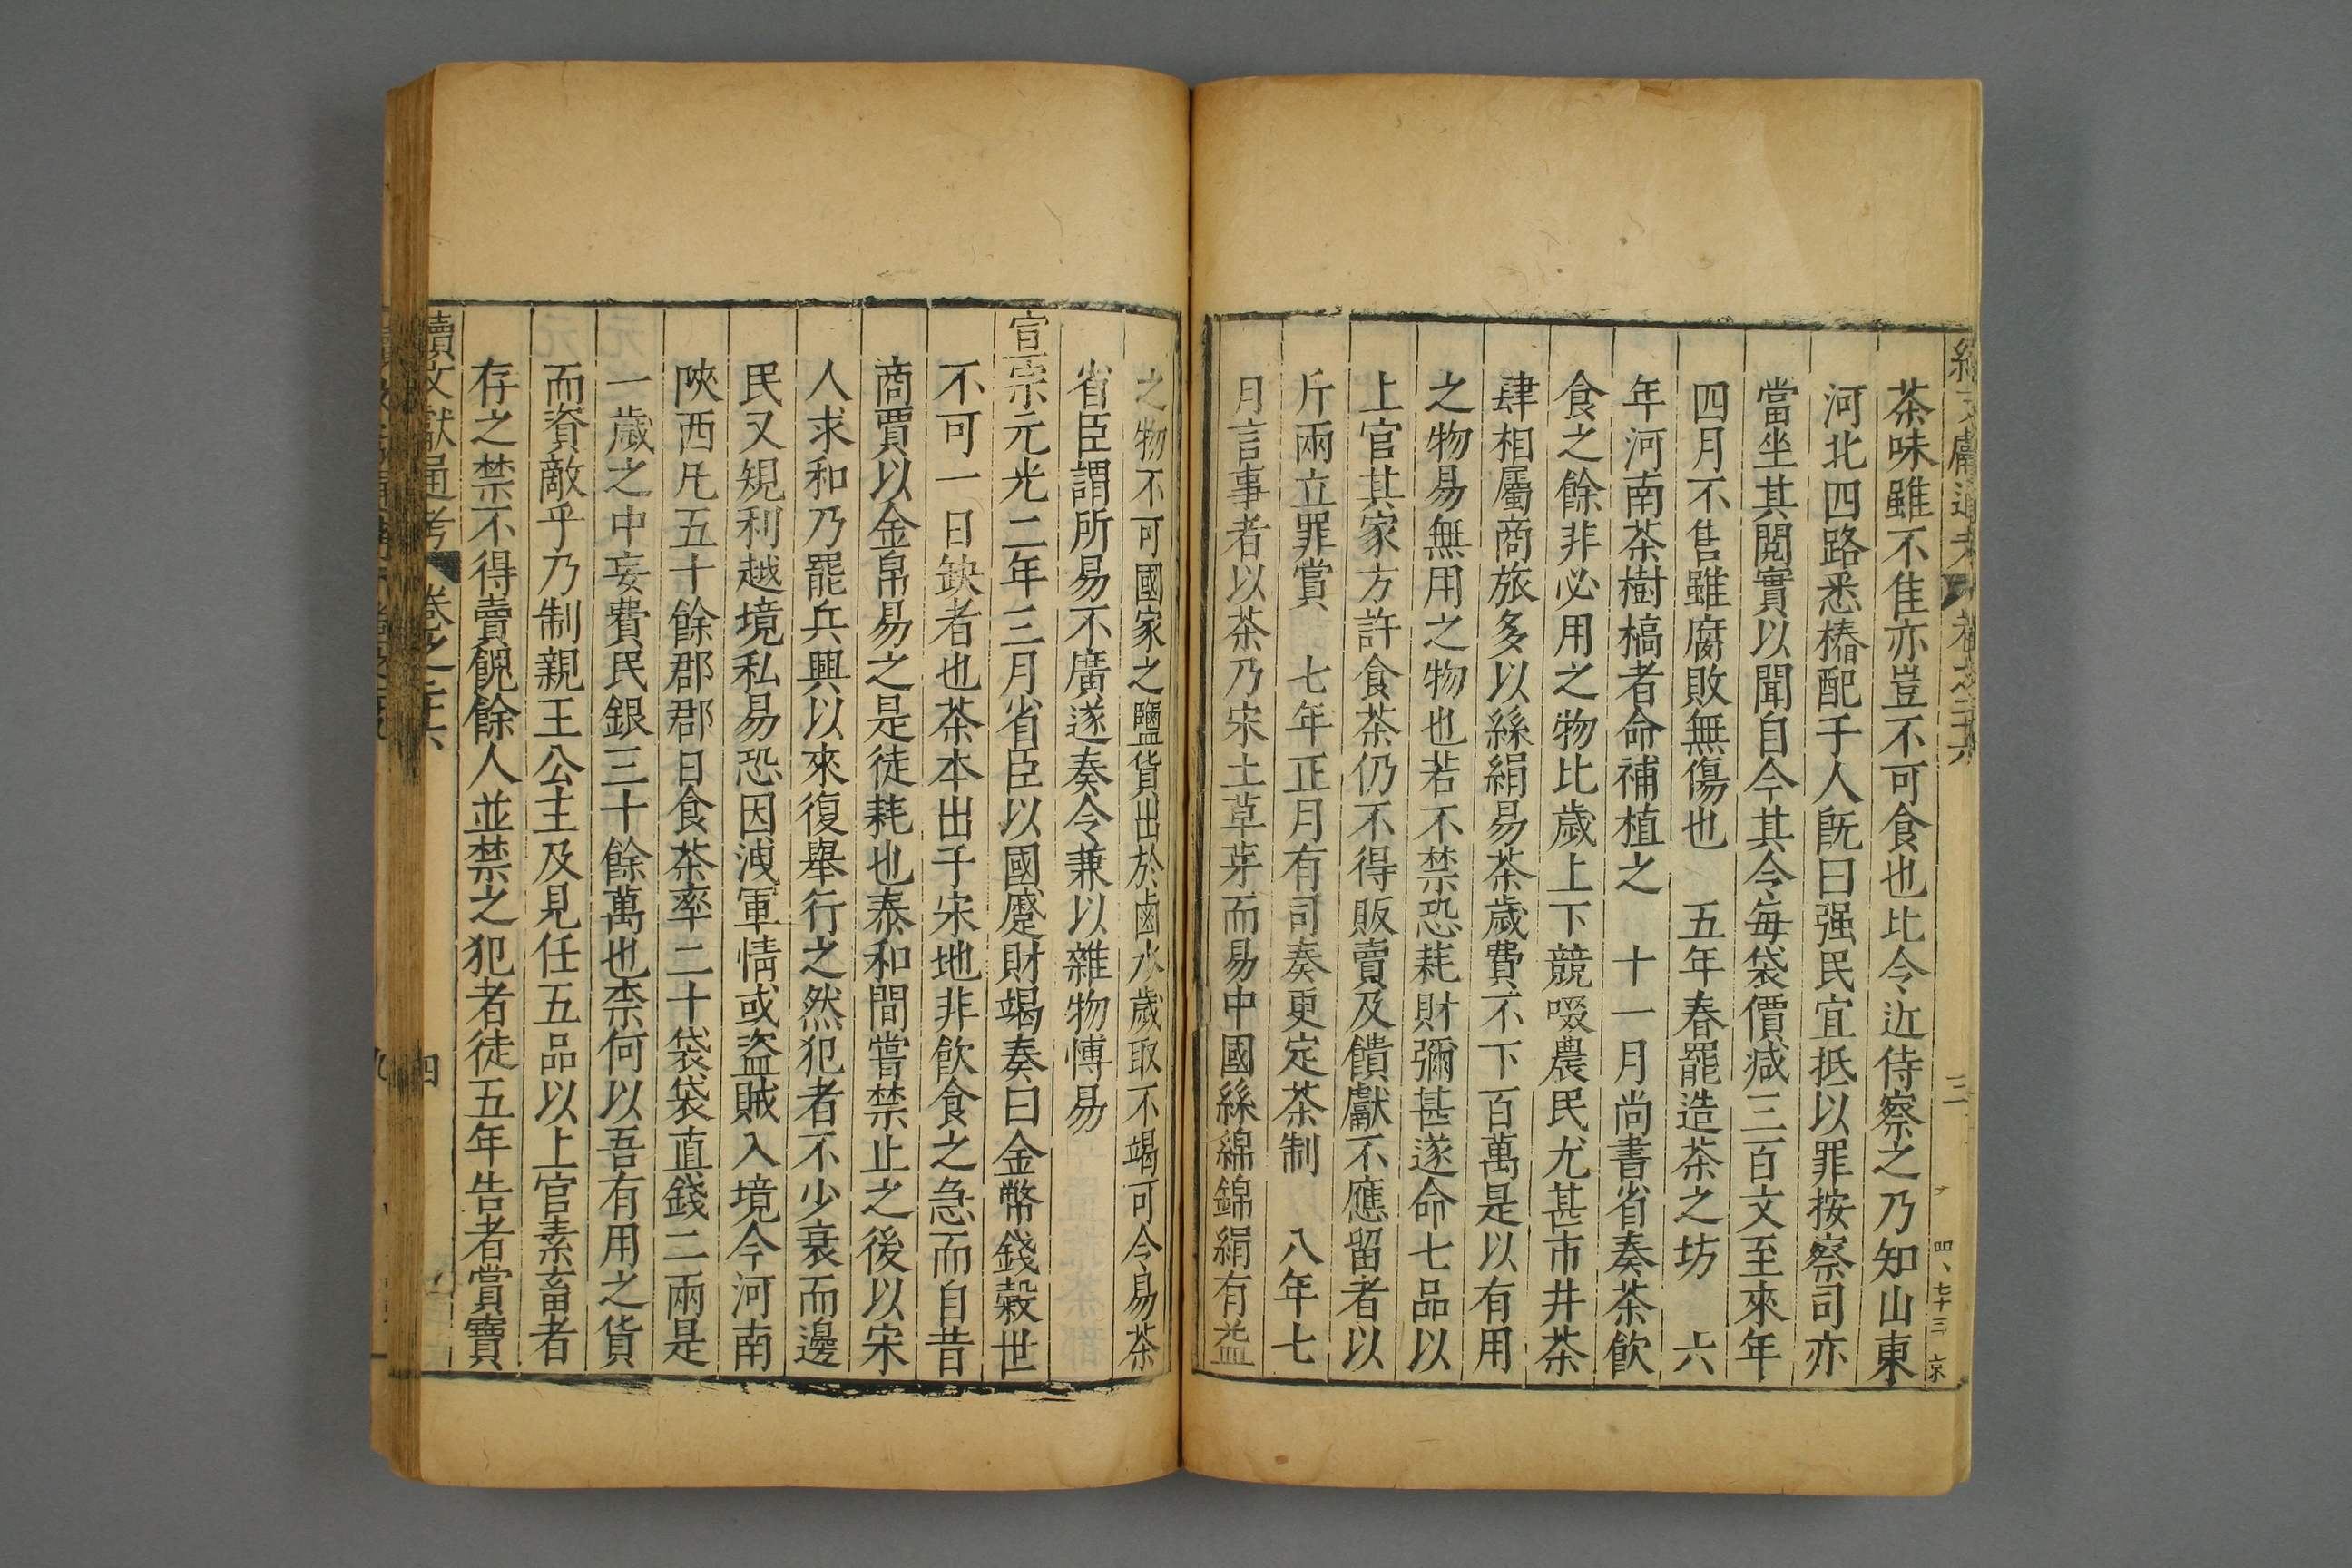 茶味雖不佳亦豈不可食也比令近侍察之乃知山東
河北四路悉椿配于人既曰强民宜抵以罪按察司亦
當坐其閱實以聞自今其令每袋價減三百文至來年
四月不售雖腐敗無傷也　五年春罷造茶之坊　六
年河南茶樹槁者命補植之　十一月尚書省奏茶飲
食之餘非必用之物比歲上下競啜農民尤甚市井茶
肆相屬商旅多以絲絹易茶歲費不下百萬是以有用
之物易無用之物也若不禁恐耗財彌甚遂命七品以
上官其家方許食茶仍不得販賣及饋獻不應留者以
斤兩立罪賞　七年正月有司奏更定茶制　八年七
月言事者以茶乃宋土草芽而易中國絲綿錦絹有益
之物不可國家之鹽貨出於鹵水歲取不竭可令易茶
省臣謂所易不廣遂奏令兼以雜物博易
宣宗元光二年三月省臣以國蹙財竭奏曰金幣錢穀世
不可一日缺者也茶本出于宋地非飲食之急而自昔
商賈以金帛易之是徒耗也泰和間嘗禁止之後以宋
人求和乃罷兵興以來復舉行之然犯者不少衰而邊
民又窺利越境私易恐因洩軍情或盜賊入境今河南
陝西凡五十餘郡郡日食茶率二十袋袋直錢二兩是
一歲之中妄費民銀三十餘萬也柰何以吾有用之貨
而資敵乎乃制親王公主及見任五品以上官素畜者
存之禁不得賣餽餘人並禁之犯者徒五年告者賞寶
續文獻通考　卷之二十六　四